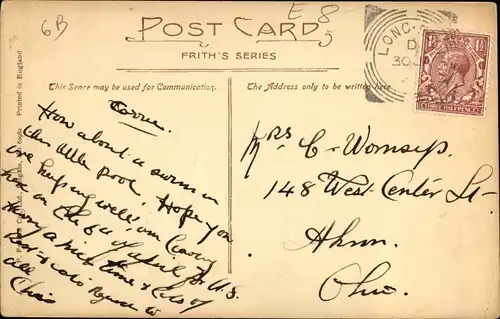 6B
E8
POST CARD
FRITH'S SERIES
This Space may be used for Communication.
The Address only to be written here.
Printed in England
LONG
D
30
THREE HALFPENCE
How about a swim in
this pool. Hope you
are keeping well, am leaving
here on the 6th of April for U.S.
Having a nice time & lots of
Regards to
all
Chris
Mrs C. Womsys.
148 West Center St
Akron.
Ohio.